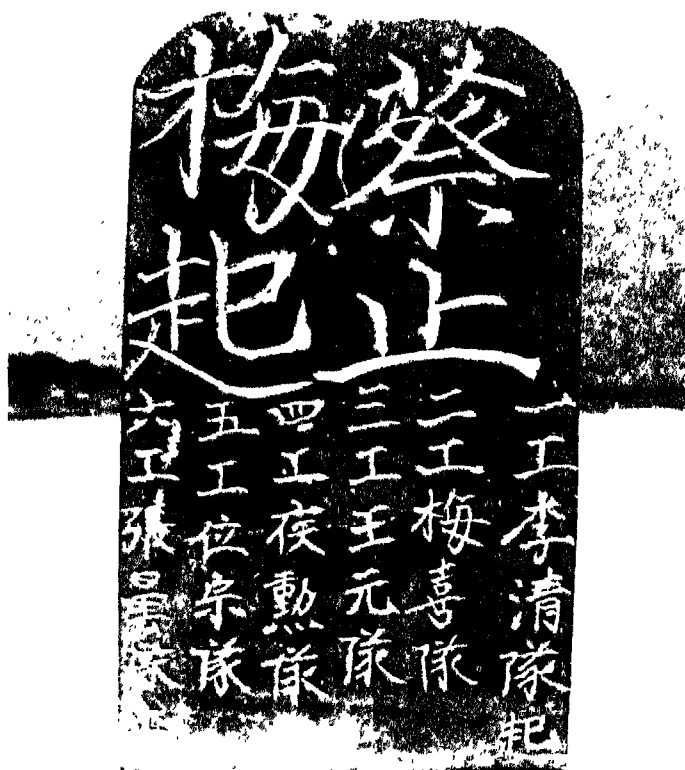 蔡止
梅起
一工李清隊起
二工梅喜隊
三工王元隊
四工侯勲隊
五工位宗隊
六工張昌隊